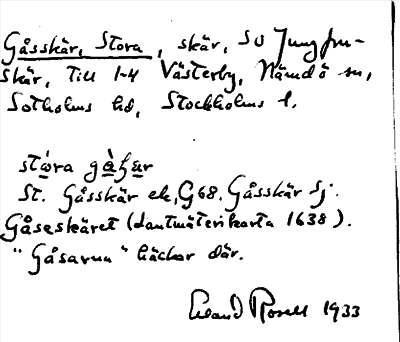 Gåsskär, Stora, skär, SO Jungfru-
skär, till 1-4 Västerby, Nämdö sn,
Sotholms hd, Stockholms l.
stωra gàʃær
St. Gåsskär ek, G 68. Gåsskär Sj.
Gåseskäret (Lantmäterikarta 1638).
"Gåsarna" häckar där.
Erland Rosell 1933